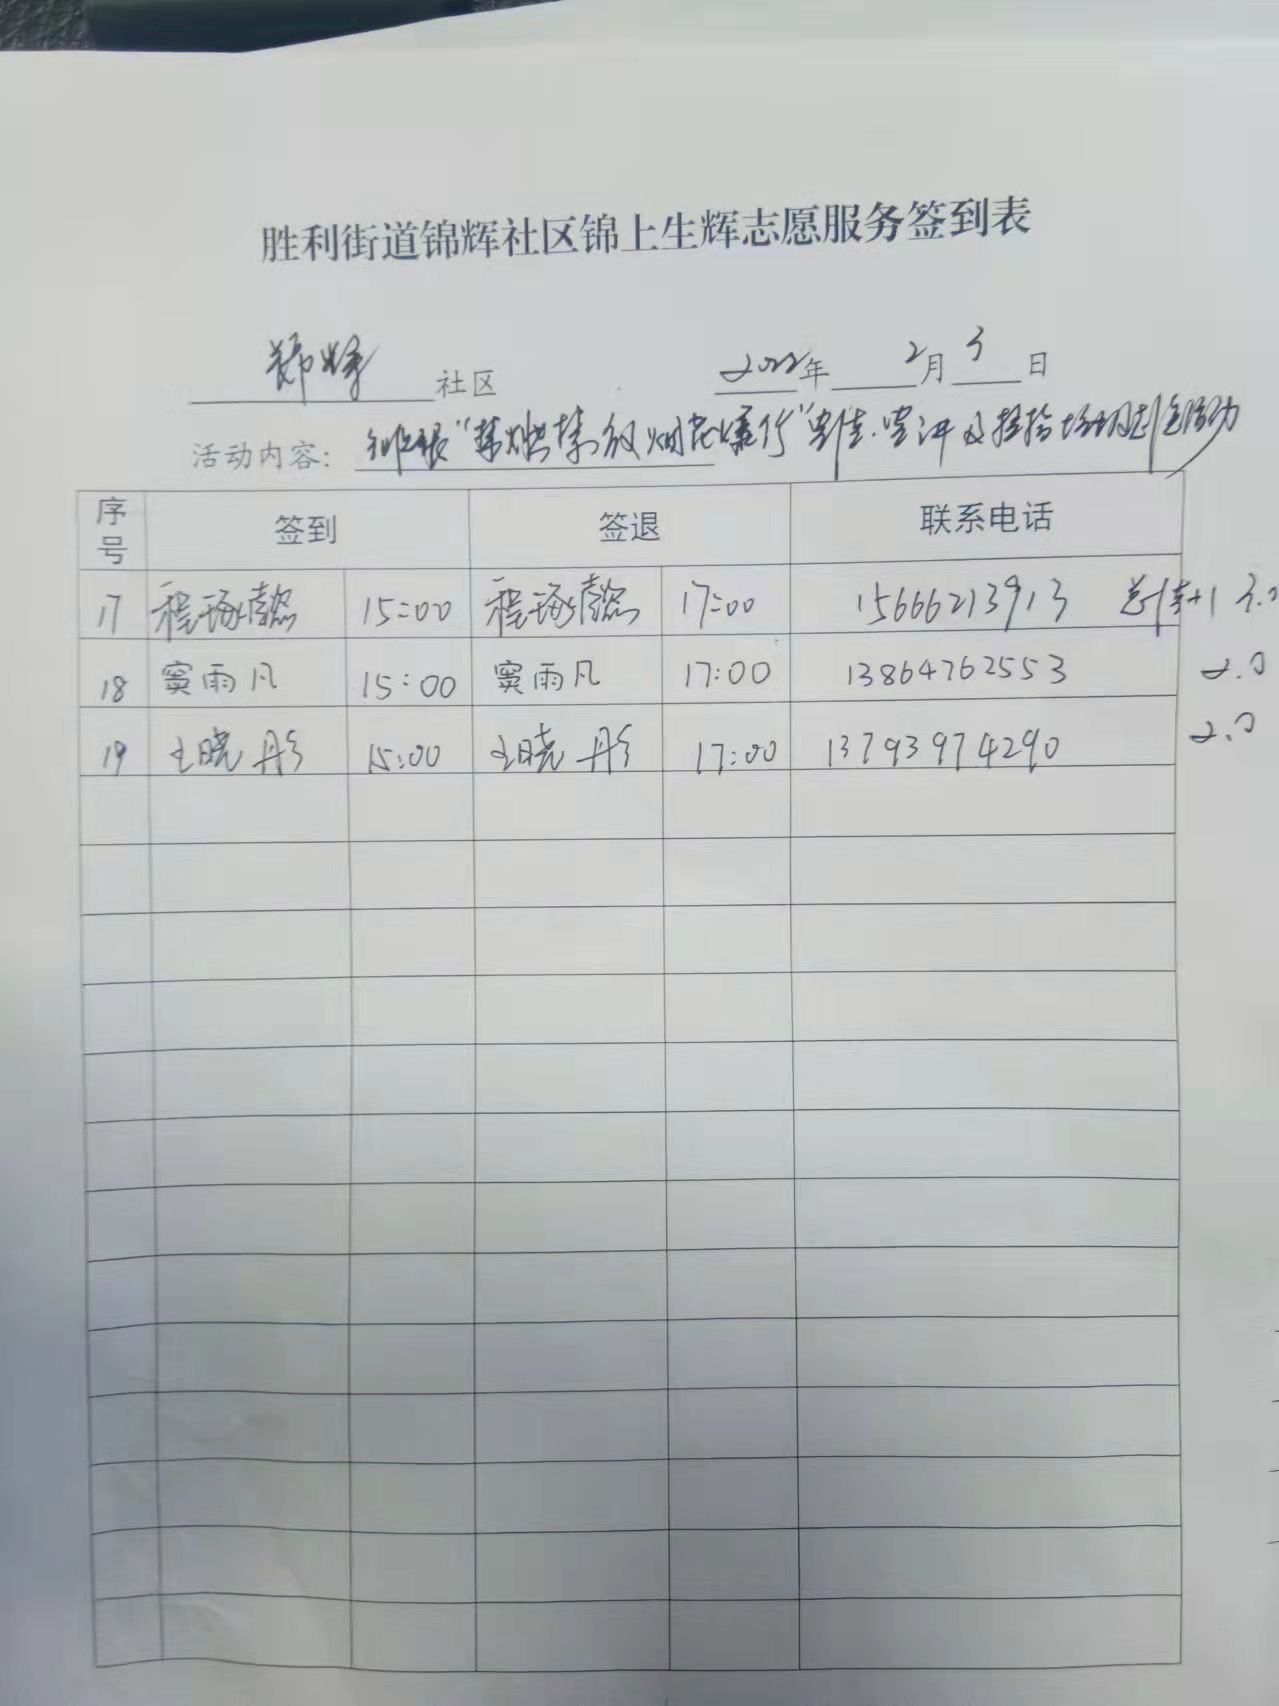 胜利街道锦辉社区锦上生辉志愿服务签到表
锦辉 社区 2022年 2月 3 日
活动内容: "禁燃禁放烟花爆竹"宣传.宣讲及捡拾垃圾 活动
序号 签到 签退 联系电话
17 程琢懿 15:00 程琢懿 17:00 15666213913 +1 3.0
18 窦雨凡 15:00 窦雨凡 17:00 13864762553 2.0
19 王晓彤 15:00 王晓彤 17:00 13793974290 2.0